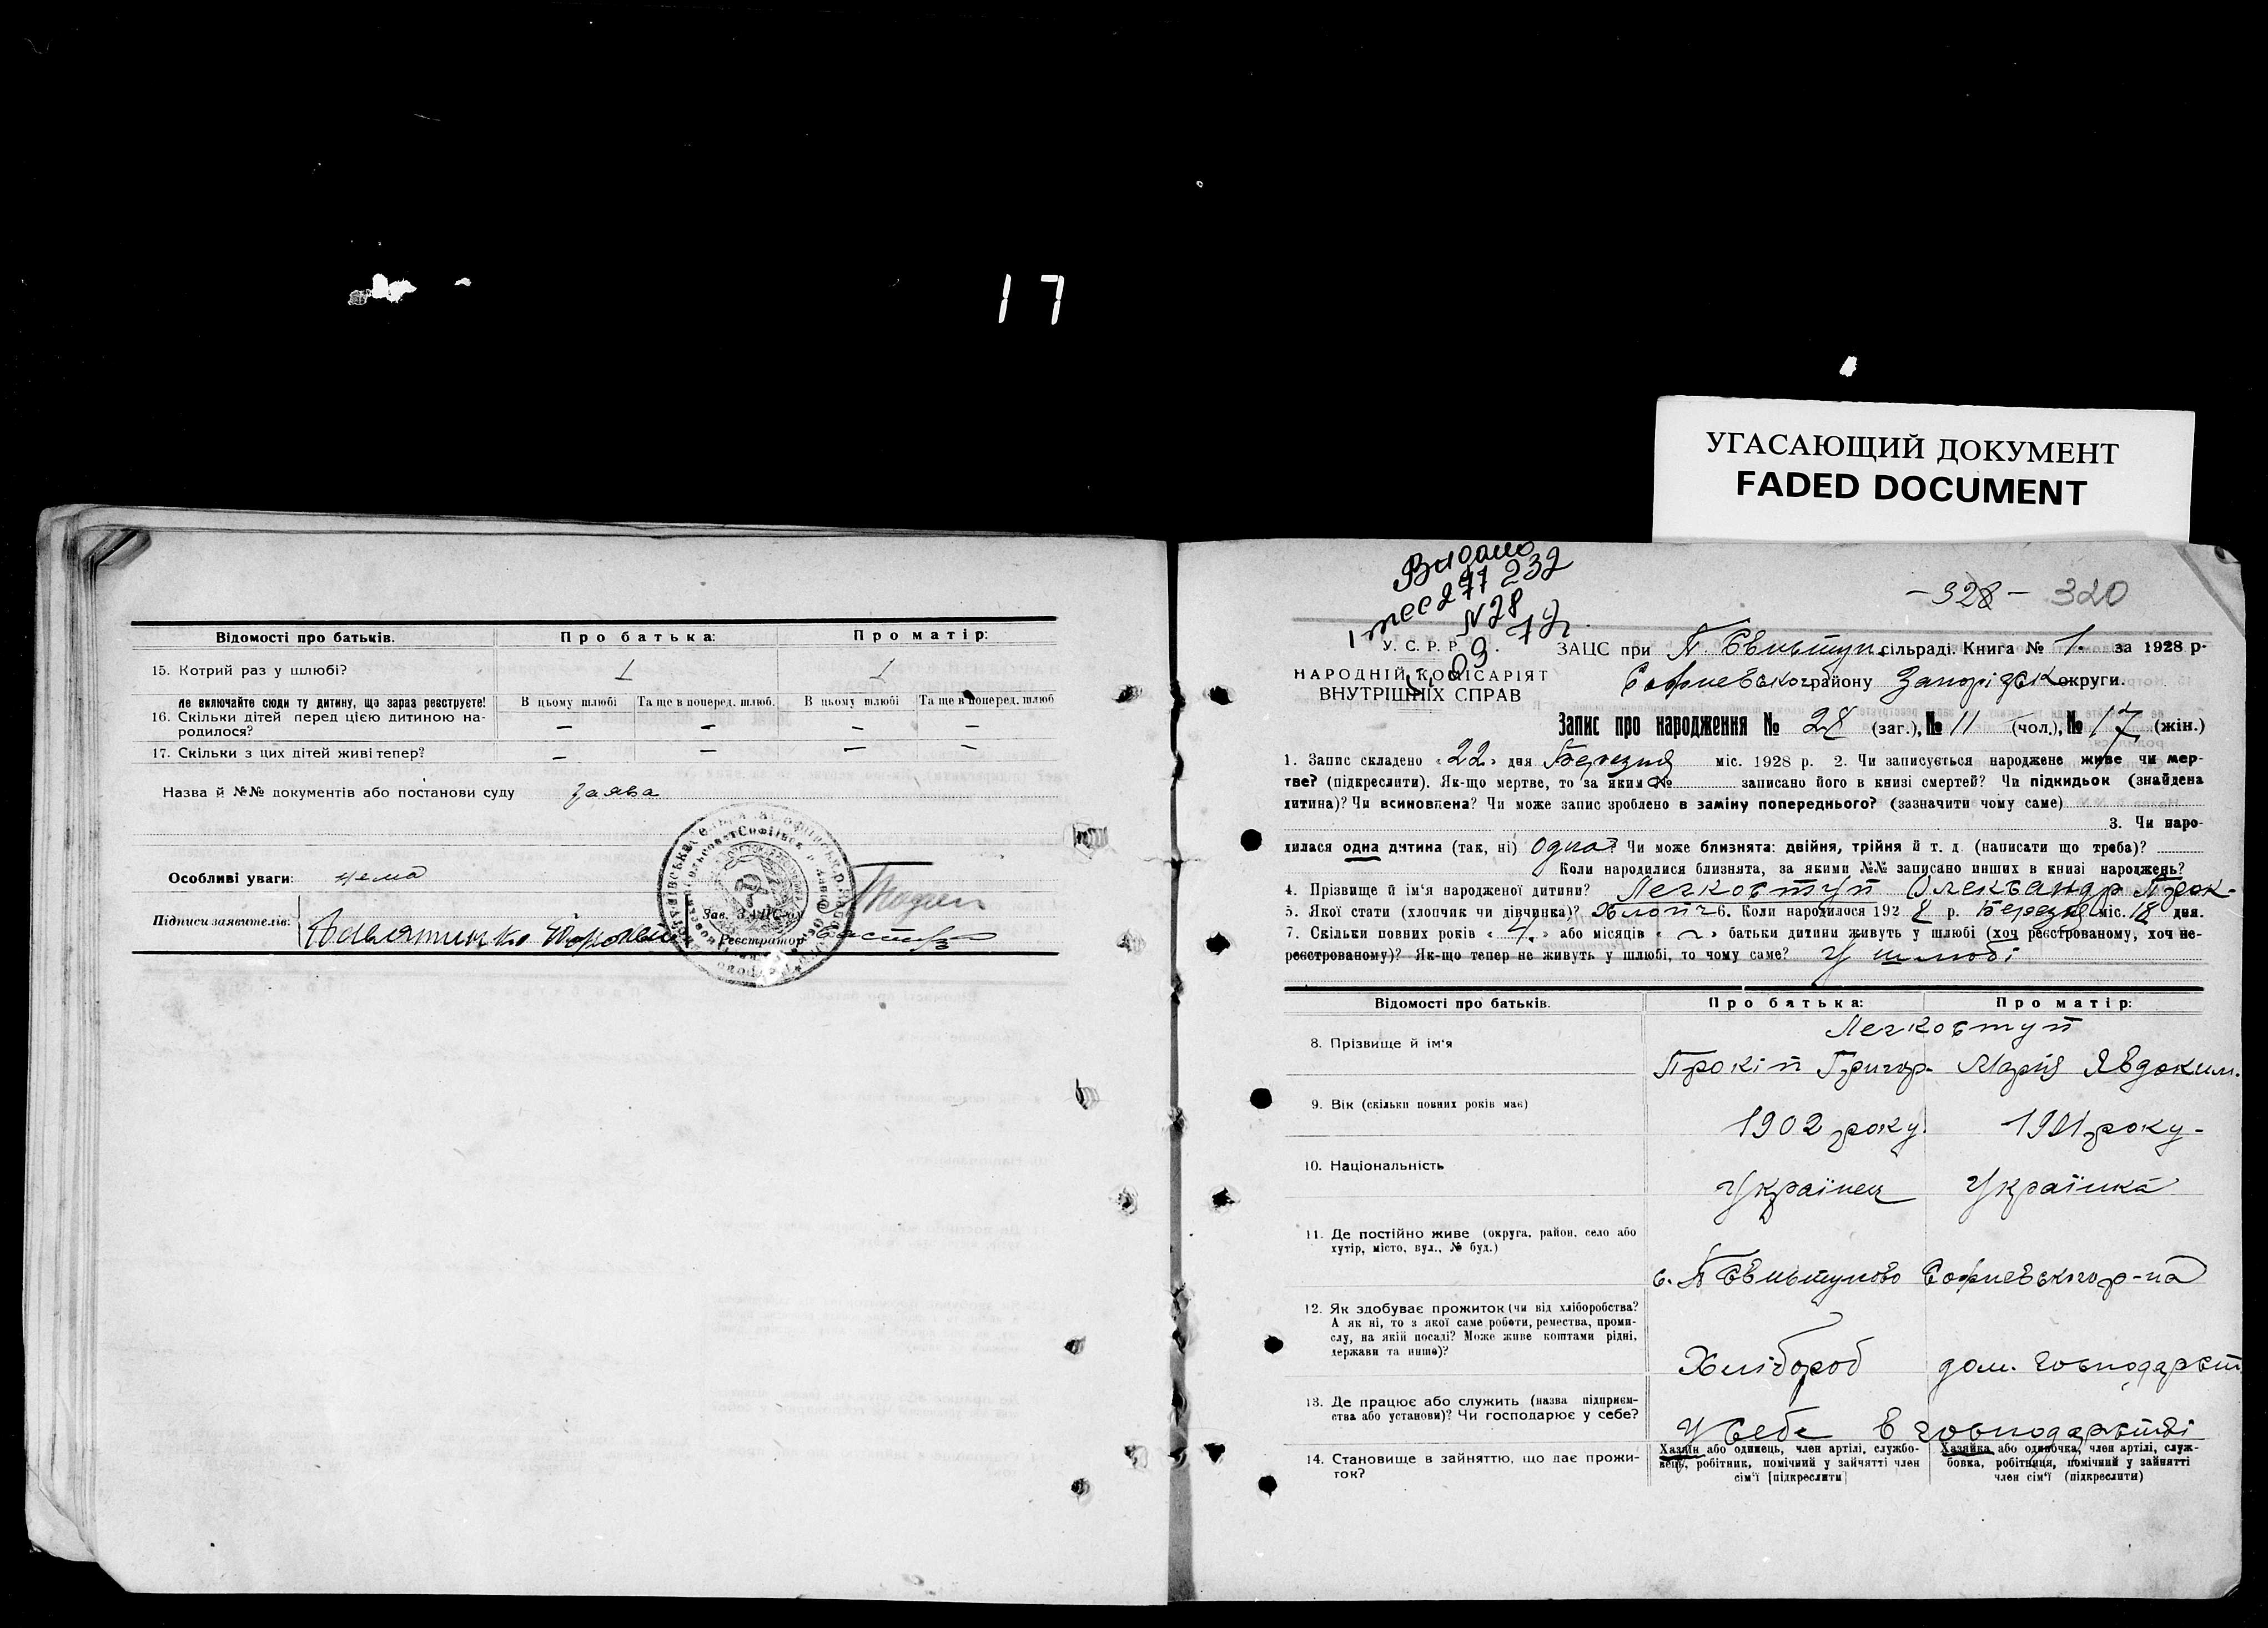 17
УГАСАЮЩИЙ ДОКУМЕНТ
FADED DOCUMENT
Відомості про батьків. Про батька: Про матір:
15. Котрий раз у шлюбі? 1 1
Не включайте сюди ту дитину, що зараз реєструєте! В цьому шлюбі Та ще в поперед. шлюб. В цьому шлюбі Та ще в поперед. шлюб
16. Скільки дітей перед цією дитиною на- — — — —
родилося?
17. Скільки з цих дітей живі тепер? — — — —
Назва й №№ документів або постанови суду заява
Особливі уваги: нема
Підписи заявителів:
Зав. ЗАЦС'ом
Реєстратор
Видано
232
N 28
-328- 320
У. С. Р. Р.
НАРОДНІЙ КОМІСАРІЯТ
ВНУТРІШНІХ СПРАВ
ЗАЦС при сільраді. Книга № 1. за 1928 р-
Софиевског району Запорізьк округи.
Запис про народження № 28 (заг.), № 11 (чол.), № 17 (жін.)
1. Запис складено «22» дня Березня міс. 1928 р. 2. Чи записується народжене живе чи мер-
тве? (підкреслити). Як-що мертве, то за яким № записано його в книзі смертей? Чи підкидьок (знайдена
дитина)? Чи всиновлена? Чи може запис зроблено в заміну попереднього? (зазначити чому саме)
3. Чи наро-
дилася одна дитина (так, ні) одна Чи може близнята: двійня, трійня й т. д. (написати що треба)?
Коли народилися близнята, за якими №№ записано инших в книзі народжень?
4. Прізвище й ім'я народженої дитини? Легкоступ Олександр Прок-
5. Якої стати (хлопчик чи дівчинка)? Хлопч 6. Коли народилося 1928 р. Березня міс. 18 дня.
7. Скільки повних років «4.» або місяців « ~ » батьки дитини живуть у шлюбі (хоч реєстрованому, хоч не-
реєстрованому)? Як-що тепер не живуть у шлюбі, то чому саме? У шлюбі
Відомості про батьків. Про батька: Про матір:
Легкоступ
8. Прізвище й ім'я
Прокіп Григор- Марія Явдоким.
9. Вік (скільки повних років має)
1902 року. 1901 року-
10. Національність
Українец Українка
11. Де постійно живе (округа, район, село або
хутір, місто, вул., № буд.)
с. Софиевського р-на
12. Як здобуває прожиток (чи від хліборобства?
А як ні, то з якої саме роботи, ремества, проми-
слу, на якій посаді? Може живе коштами рідні,
держави та инше)?
Хлібороб дом. господарст
13. Де працює або служить (назва підприєм-
ства або установи)? Чи господарює у себе?
У себе в господарстві
14. Становище в зайняттю, що дає прожи-
ток?
Хазяїн або одинець, член артілі, службо-
вець, робітник, помічний у зайнятті член
сім'ї [підкреслити]
Хазяйка або одиночка, член артілі, служ-
бовка, робітниця, помічний у зайнятті
член сім'ї (підкреслити)